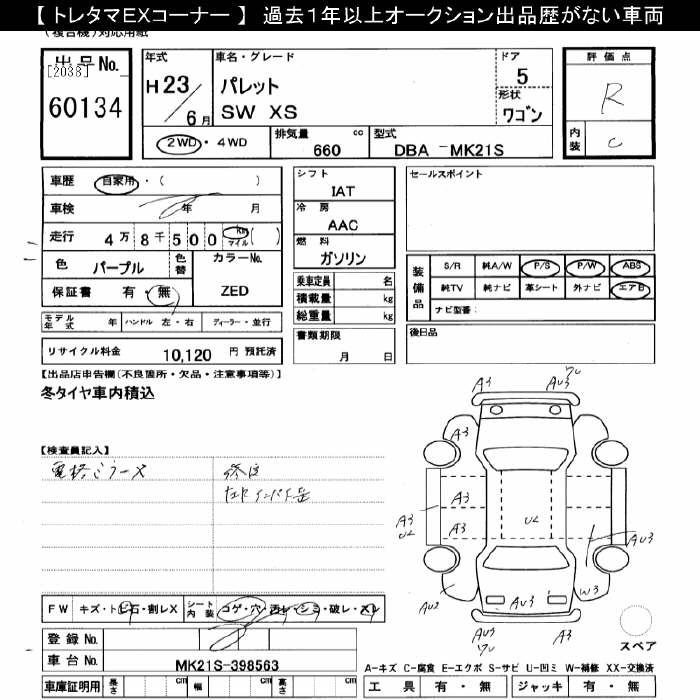 【 トレタマEXコーナー 】 過去1年以上オークション出品歴がない車両
(複合機)対応用紙
出品No.
[2038]
60134
年式
H23/6月
車名・グレード
パレット
SW XS
ドア
5
形状
ワゴン
2WD・4WD
排気量 cc
660
型式
DBA -MK21S
評価点
R
内装
C
車歴 自家用・( )
車検 年 月
走行 4万8千500 km マイル ( )
色 パープル
色替
カラーNo.
ZED
保証書 有・無
モデル年式 年 ハンドル 左・右 ディーラー・並行
リサイクル料金 10,120 円 預託済
シフト
IAT
冷房
AAC
燃料
ガソリン
乗車定員 名
積載量 kg
総重量 kg
書類期限
月 日
セールスポイント
装備品
S/R 純A/W P/S P/W ABS
純TV 純ナビ 革シート 外ナビ エアB
ナビ型番:
後日品
【出品店申告欄(不良箇所・欠品・注意事項等)】
冬タイヤ車内積込
【検査員記入】
電格ミラーX
修復
A3
AU3
A3
A3
A3
A3
A3
U2
U2
AU3
W3
AU2
AU3
AU3
A3
スペア
FW キズ・トビ石・割レX シート内装 コゲ・穴・汚レ・シミ・破レ・スレ
登録No.
車台No. MK21S-398563
車庫証明用 長さ cm 幅 cm 高さ cm
A-キズ C-腐食 E-エクボ S-サビ U-凹ミ W-補修 XX-交換済
工具 有・無 ジャッキ 有・無